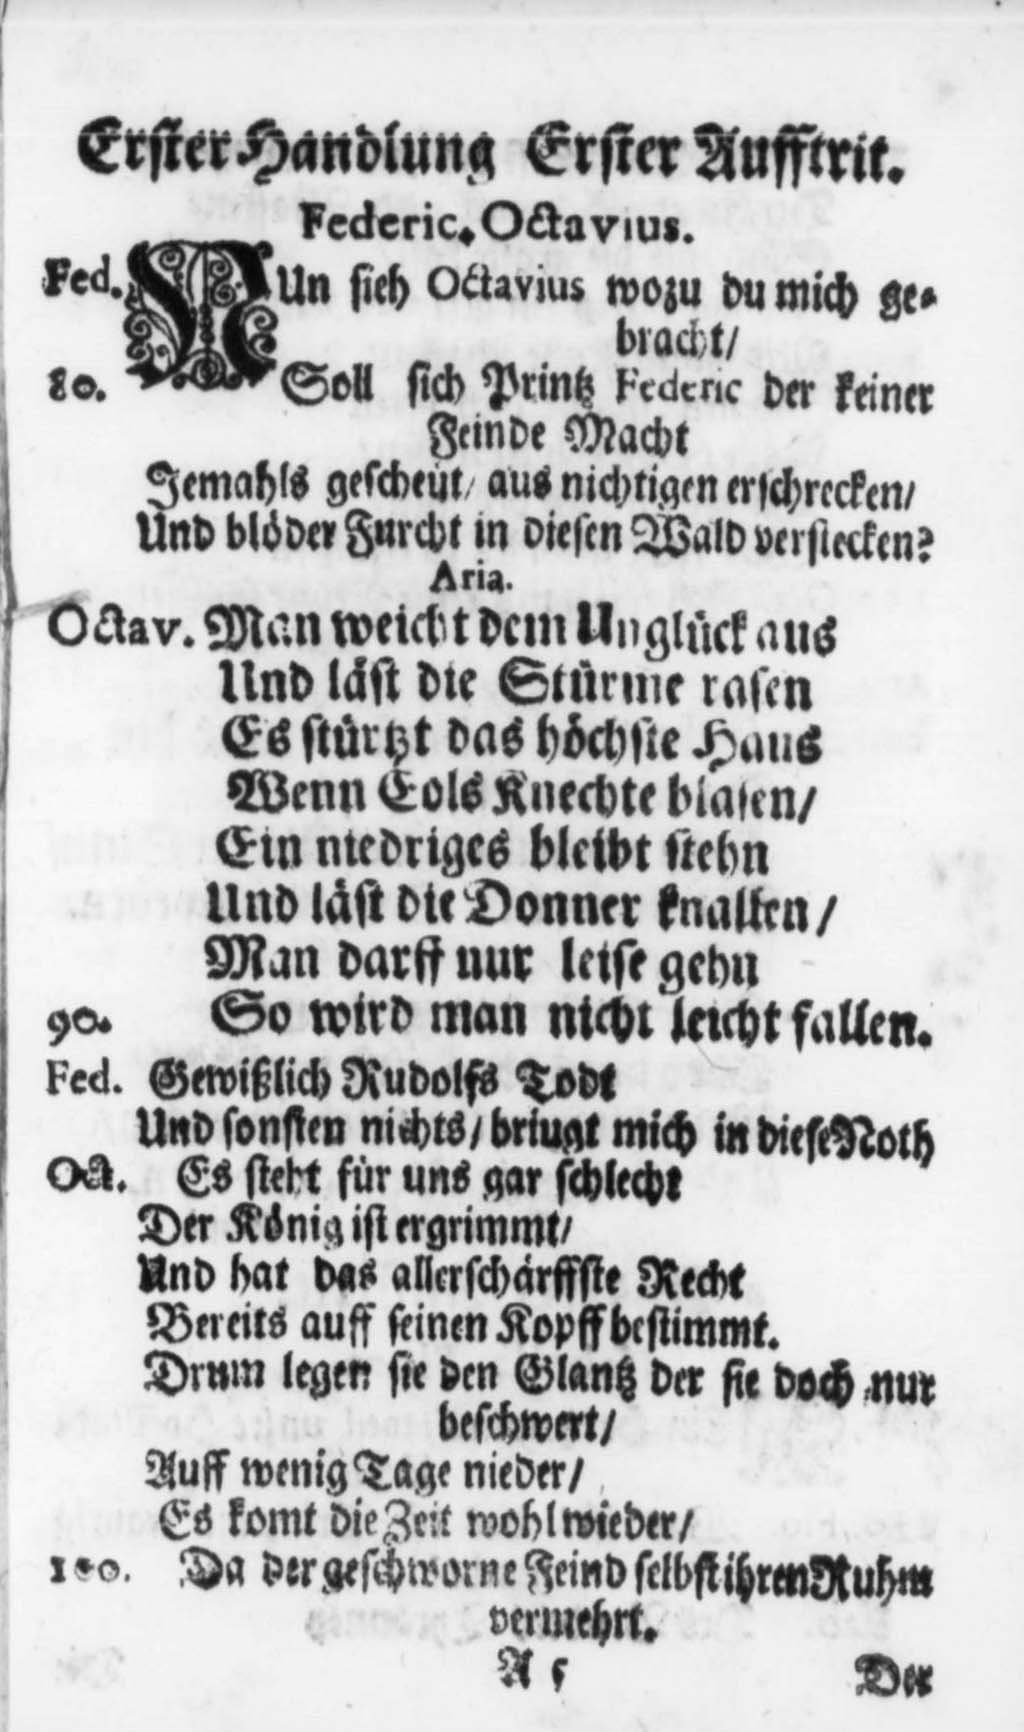 Erster Handlung Erster Aufftrit.
Federic. Octavius.
Fed. NUn sieh Octavius wozu du mich ge-
bracht/
80. Soll sich Printz Federic der keiner
Feinde Macht
Jemahls gescheut/ aus nichtigen erschrecken/
Und blöder Furcht in diesen Wald verstecken?
Aria.
Octav. Man weicht dem Unglück aus
Und läst die Stürme rasen
Es stürtzt das höchste Haus
Wenn Eols Knechte blasen/
Ein niedriges bleibt stehn
Und läst die Donner knallen/
Man darff nur leise gehn
90. So wird man nicht leicht fallen.
Fed. Gewißlich Rudolfs Todt
Und sonsten nichts/ bringt mich in diese Noth
Oct. Es steht für uns gar schlecht
Der König ist ergrimmt/
Und hat das allerschärffste Recht
Bereits auff seinen Kopff bestimmt.
Drum legen sie den Glantz der sie doch nur
beschwert/
Auff wenig Tage nieder/
Es komt die Zeit wohl wieder/
100. Da der geschworne Feind selbst ihren Ruhm
vermehrt.
A 5 Der